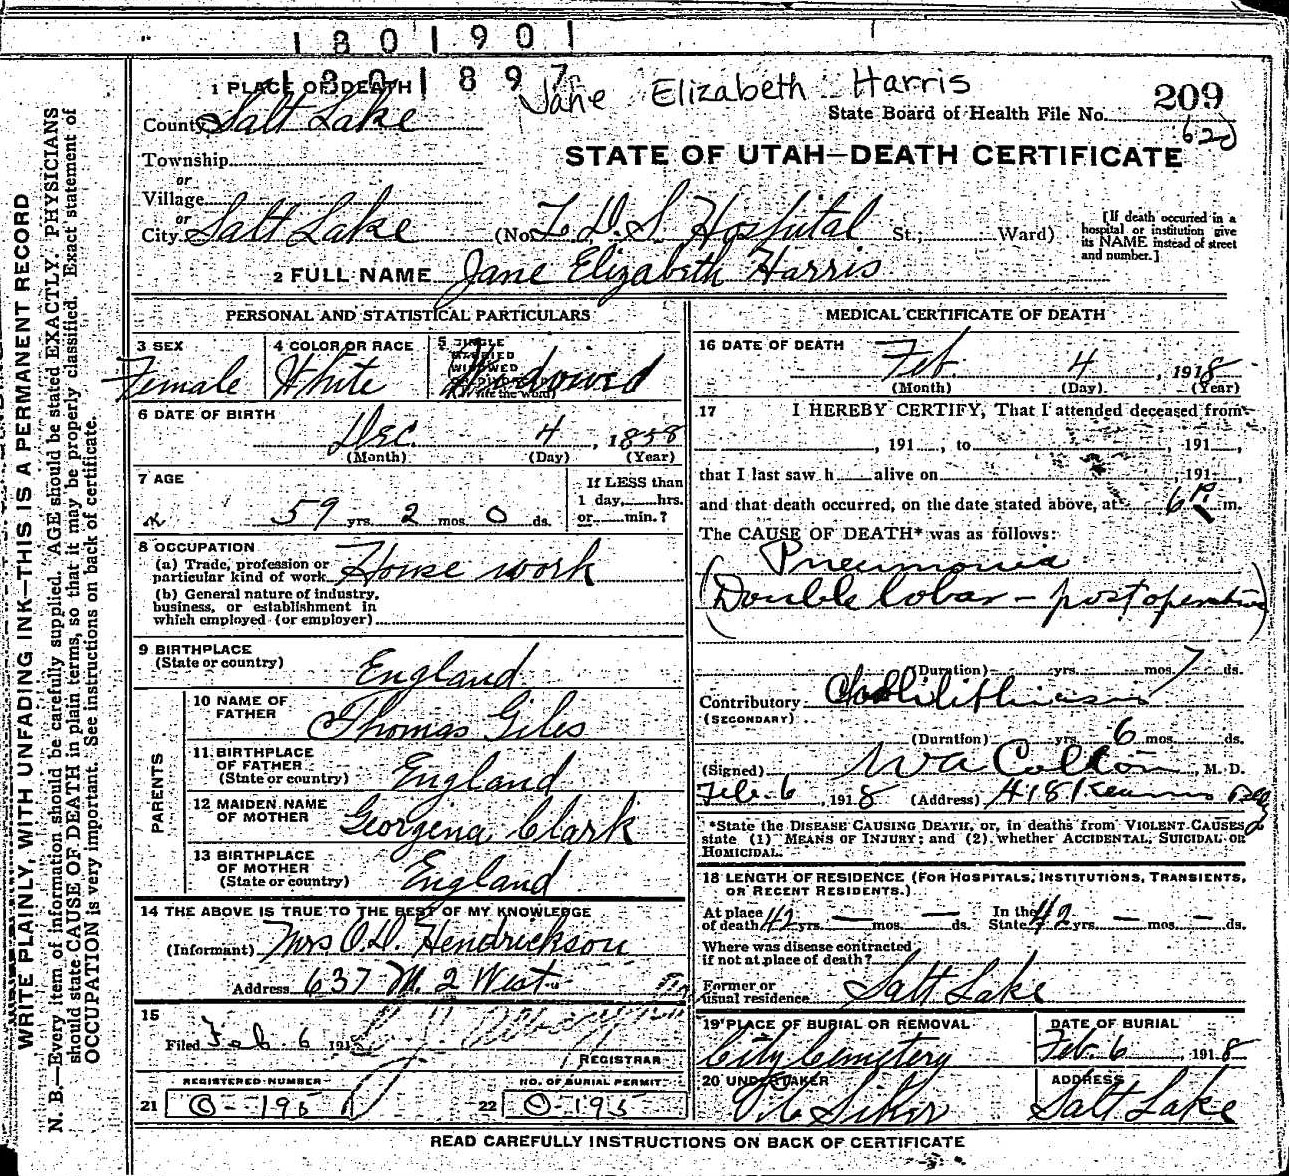 1801901
1801897
Jane Elizabeth Harris
1 PLACE OF DEATH
State Board of Health File No. 209
County Salt Lake
62
STATE OF UTAH—DEATH CERTIFICATE
Township
or
Village
or
City Salt Lake (No. L. D. S. Hospital St.; Ward)
[If death occurred in a
hospital or institution give
its NAME instead of street
and number.]
2 FULL NAME Jane Elizabeth Harris
PERSONAL AND STATISTICAL PARTICULARS
3 SEX
Female
4 COLOR OR RACE
White
5 SINGLE
MARRIED
WIDOWED
Widowed
6 DATE OF BIRTH
Dec. 4, 1858
(Month) (Day) (Year)
7 AGE
59 yrs. 2 mos. 0 ds.
If LESS than
1 day, hrs.
or min.?
8 OCCUPATION
(a) Trade, profession or
particular kind of work House work
(b) General nature of industry,
business, or establishment in
which employed (or employer)
9 BIRTHPLACE
(State or country) England
PARENTS
10 NAME OF
FATHER Thomas Giles
11 BIRTHPLACE
OF FATHER
(State or country) England
12 MAIDEN NAME
OF MOTHER Georgena Clark
13 BIRTHPLACE
OF MOTHER
(State or country) England
14 THE ABOVE IS TRUE TO THE BEST OF MY KNOWLEDGE
(Informant) Mrs O. D. Hendrickson
Address 637 N. 2 West
15
Filed Feb. 6 191
REGISTRAR
REGISTERED NUMBER
21 0-195
NO. OF BURIAL PERMIT
22 0-195
MEDICAL CERTIFICATE OF DEATH
16 DATE OF DEATH
Feb. 4, 1918
(Month) (Day) (Year)
17 I HEREBY CERTIFY, That I attended deceased from
, 191 , to , 191 ,
that I last saw h alive on , 191 ,
and that death occurred, on the date stated above, at 6 P. m.
The CAUSE OF DEATH* was as follows:
Pneumonia
(Double lobar - post operative)
(Duration) yrs. mos. 7 ds.
Contributory
(SECONDARY)
(Duration) yrs. 6 mos. ds.
(Signed) W A Colton, M. D.
Feb. 6, 1918 (Address) 418 Kearns Bldg
*State the DISEASE CAUSING DEATH, or, in deaths from VIOLENT CAUSES,
state (1) MEANS OF INJURY; and (2) whether ACCIDENTAL, SUICIDAL OR
HOMICIDAL.
18 LENGTH OF RESIDENCE (FOR HOSPITALS, INSTITUTIONS, TRANSIENTS,
OR RECENT RESIDENTS.)
At place
of death 42 yrs. — mos. — ds.
In the
State 42 yrs. — mos. — ds.
Where was disease contracted
if not at place of death?
Former or
usual residence Salt Lake
19 PLACE OF BURIAL OR REMOVAL
City Cemetery
DATE OF BURIAL
Feb. 6, 1918
20 UNDERTAKER
ADDRESS
Salt Lake
READ CAREFULLY INSTRUCTIONS ON BACK OF CERTIFICATE
WRITE PLAINLY, WITH UNFADING INK—THIS IS A PERMANENT RECORD
N. B.—Every item of information should be carefully supplied. AGE should be stated EXACTLY. PHYSICIANS
should state CAUSE OF DEATH in plain terms, so that it may be properly classified. Exact statement of
OCCUPATION is very important. See instructions on back of certificate.